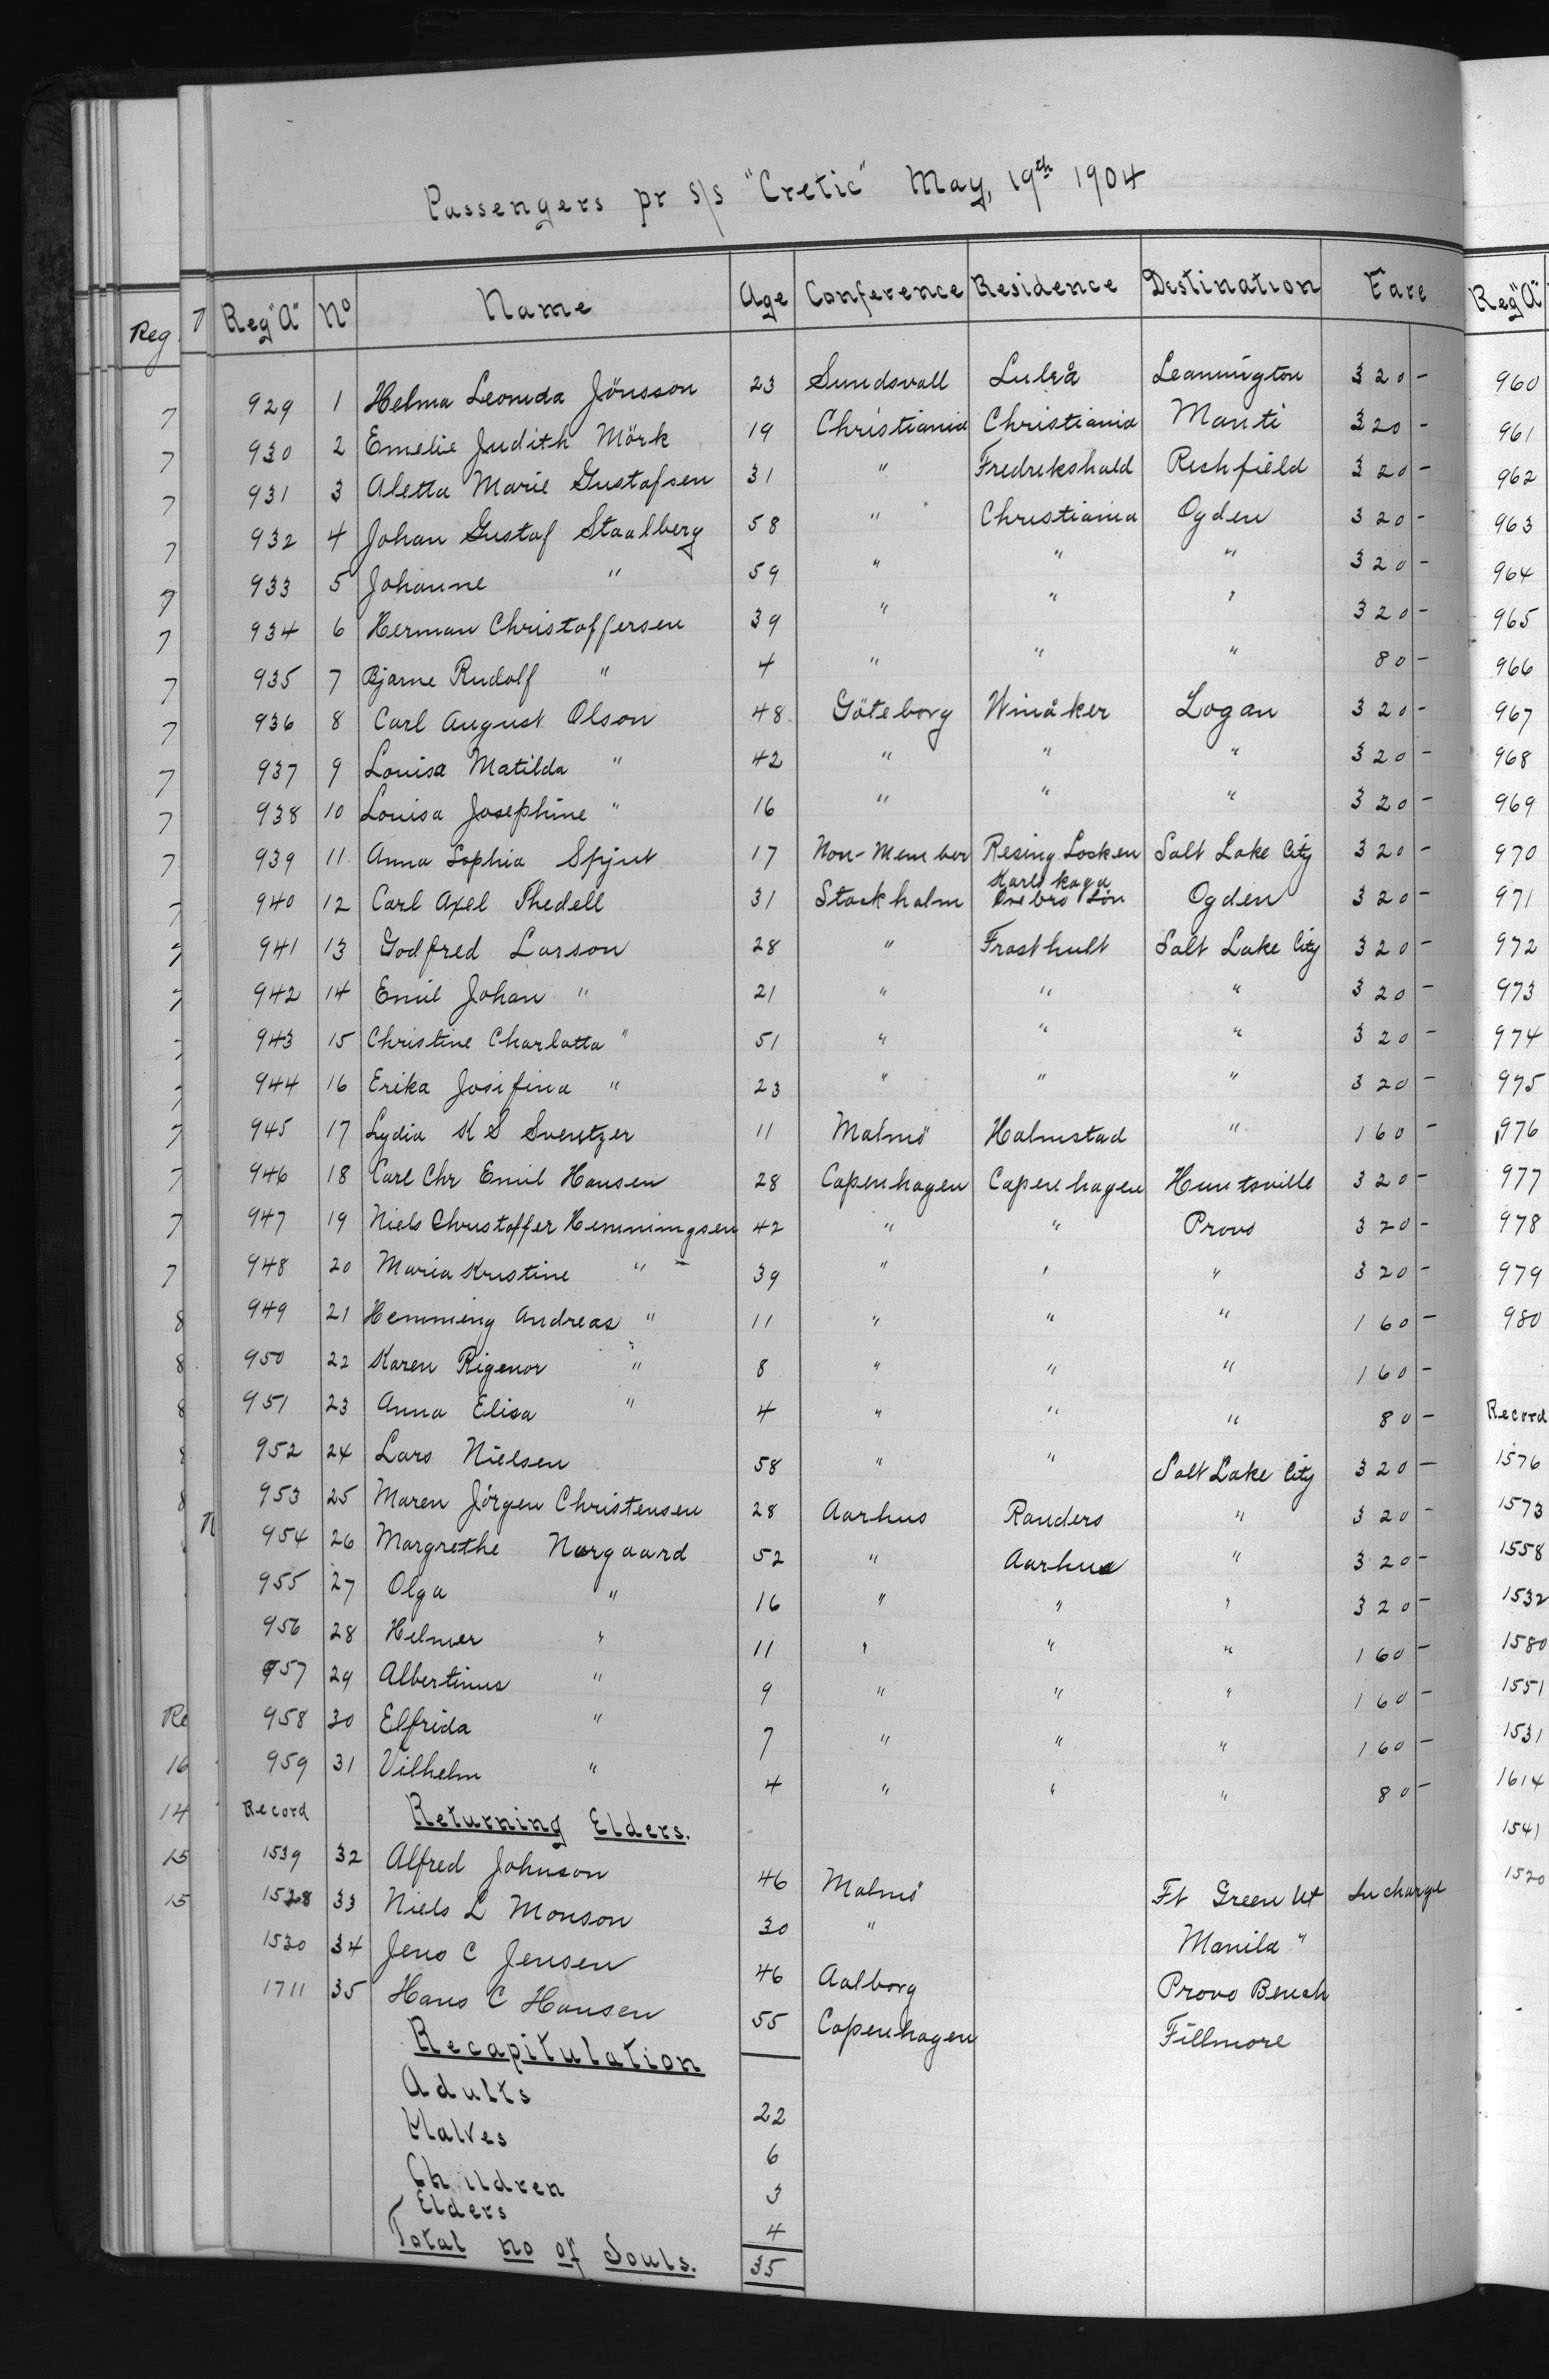 Passengers pr s/s "Cretic" May, 19th 1904
Reg "A" No Name Age Conference Residence Destination Fare
929 1 Helma Leonida Jönsson 23 Sundsvall Luleå Leamington 320 -
930 2 Emelie Judith Mörk 19 Christiania Christiania Manti 320 -
931 3 Aletta Marie Gustafsen 31 " Fredrikshald Richfield 320 -
932 4 Johan Gustaf Staalberg 58 " Christiania Ogden 320 -
933 5 Johanne " 59 " " " 320 -
934 6 Herman Christoffersen 39 " " " 320 -
935 7 Bjarne Rudolf " 4 " " " 80 -
936 8 Carl August Olson 48 Göteborg Winåker Logan 320 -
937 9 Louisa Matilda " 42 " " " 320 -
938 10 Louisa Josephine " 16 " " " 320 -
939 11 Anna Sophia Spjut 17 Non-Member Rising Socken Salt Lake City 320 -
940 12 Carl Axel Thedell 31 Stockholm Karlskoga Örebro Län Ogden 320 -
941 13 Godfred Larson 28 " Frosthult Salt Lake City 320 -
942 14 Emil Johan " 21 " " " 320 -
943 15 Christine Charlotta " 51 " " " 320 -
944 16 Erika Josifina " 23 " " " 320 -
945 17 Lydia K S Sventzer 11 Malmö Halmstad " 160 -
946 18 Carl Chr Emil Hansen 28 Copenhagen Copenhagen Huntsville 320 -
947 19 Niels Christoffer Hemmingsen 42 " " Provo 320 -
948 20 Maria Kristine " 39 " " " 320 -
949 21 Hemming Andreas " 11 " " " 160 -
950 22 Karen Rigenor " 8 " " " 160 -
951 23 Anna Elisa " 4 " " " 80 -
952 24 Lars Nielsen 58 " " Salt Lake City 320 -
953 25 Maren Jörgen Christensen 28 Aarhus Randers " 320 -
954 26 Margrethe Norgaard 52 " Aarhus " 320 -
955 27 Olga " 16 " " " 320 -
956 28 Helmer " 11 " " " 160 -
957 29 Albertinus " 9 " " " 160 -
958 30 Elfrida " 7 " " " 160 -
959 31 Vilhelm " 4 " " " 80 -
Record Returning Elders.
1539 32 Alfred Johnson 46 Malmö Ft Green Ut In charge
1528 33 Niels L Monson 30 " Manila "
1530 34 Jens C Jensen 46 Aalborg Provo Bench
1711 35 Hans C Hansen 55 Copenhagen Fillmore
Recapitulation
Adults 22
Halves 6
Children 3
Elders 4
Total no of Souls. 35
Reg "A"
960
961
962
963
964
965
966
967
968
969
970
971
972
973
974
975
976
977
978
979
980
Record
1576
1573
1558
1532
1580
1551
1531
1614
1541
1520